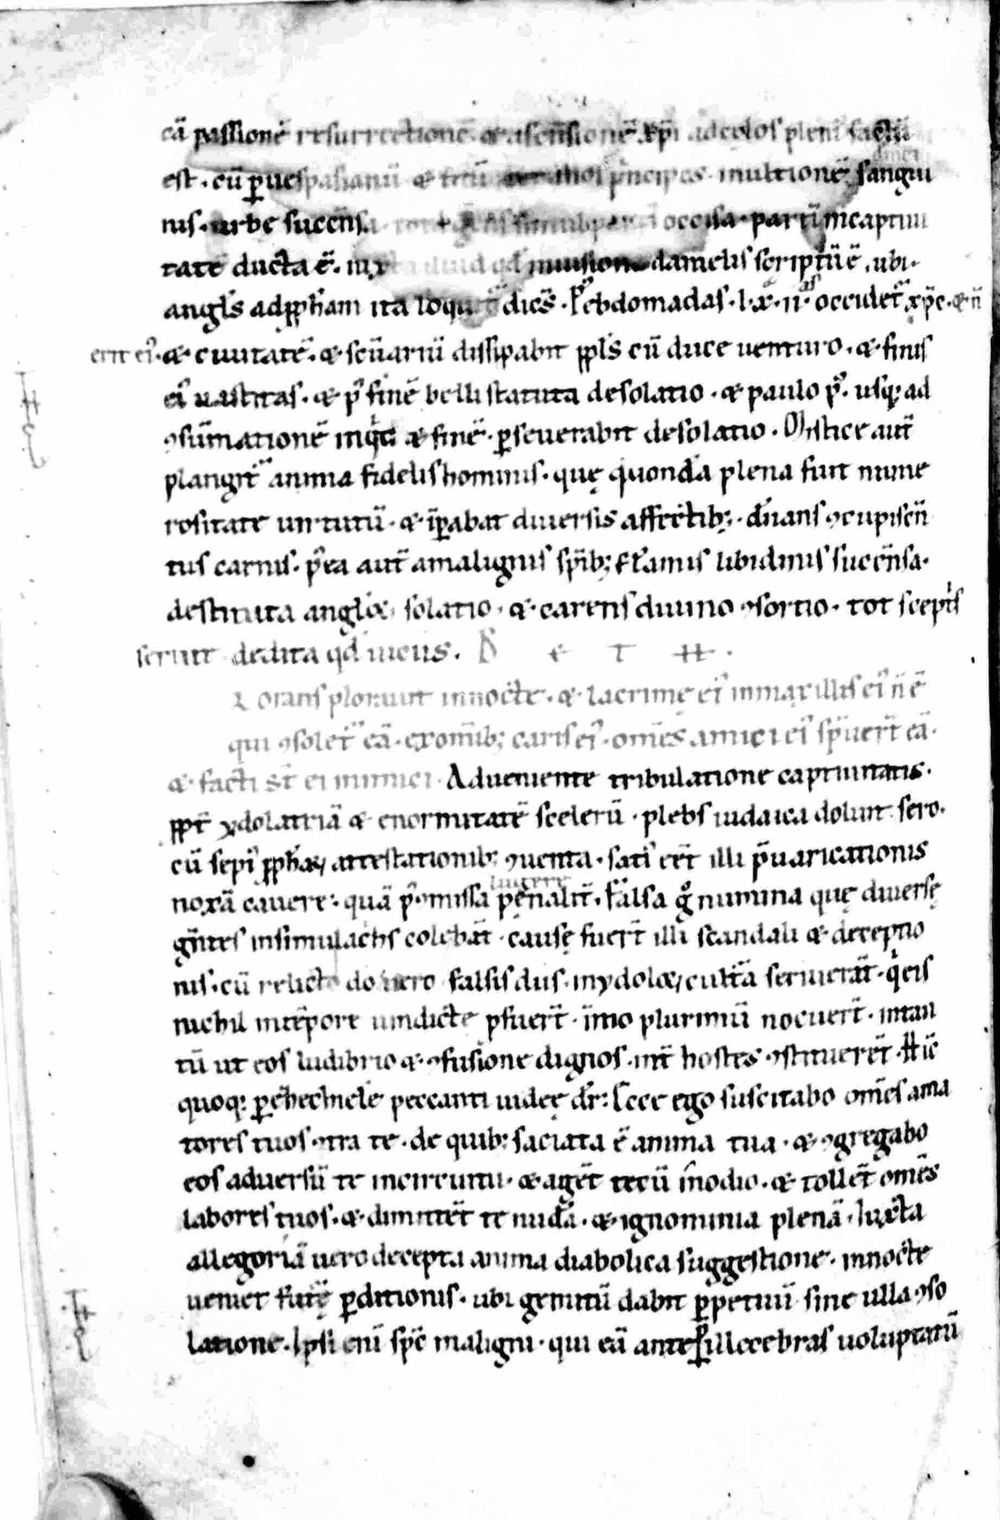 cā passionē resurrectionē ⁊ ascensionē xp̄i ad celos pleni factū
est · cū p̱ uespasianū ⁊ titū prīcipes · in ultionē sangui
nis · urbe succensa · occisa · partī in captiui
tate ducta ē · iuxta illud qđ in uisione danielis scriptū ē · ubi
angl's ad ꝓph̄am ita loquit̄ dicēs · Et post ebdomadas · lx · ii · occidet̄ xp̄c · ⁊ ñ
erit eiꝰ · ⁊ ciuitatē · ⁊ scūariū dissipabit ppl's cū duce uenturo · ⁊ finis
eiꝰ uastitas · ⁊ pꝰ finē belli statuta desolatio · ⁊ paulo pꝰ · usq; ad
ꝯsūmationē inq̇t ⁊ finē · p̱seuerabit desolatio · Mistice aut̄
plangit̄ anima fidelis hominis · quę quondā plena fuit nume
rositate uirtutū · ⁊ īp̱abat diuersis affectib; · dn̄ans ꝯcupiscēn
tiis carnis · p̄ea aut̄ a malignis sp̄ib; flāmis libidinis succensa ·
destituta angl'oꝝ solatio · ⁊ carens diuino ꝯsortio · tot scept̄s
seruit dedita qđ uiciis · B e t h ·
Plorans plorauit in nocte · ⁊ lacrime eiꝰ in maxillis eiꝰ ñ ē
qui ꝯsolet̄ eā · ex omīb; caris eiꝰ · om̄s amici eiꝰ sp̄uert̄ eā ·
⁊ facti st̄ ei inimici · Adueniente tribulatione captiuitatis ·
ꝓpt̄ ydolatriā ⁊ enormitatē scelerū · plebs iudaica doluit sero ·
cū sepiꝰ ꝓph̄aꝝ attestationib; ꝯuenta · satiꝰ eēt illi p̄uaricationis
noxā cauere · quā pꝰ ꝯmissa penalit̄ · lugere Falsa g̊ numina quę diuersę
gn̄tes in simulacris colebāt · causę fuert̄ illi scandali ⁊ deceptio
nis · cū relicto do uero falsis diis · in ydoloꝝ cultā seruierāt · q̇ eis
nichil in tēpore uindicte ꝓfuert̄ · īmo plurimū nocuert̄ · in tan
tū ut eos ludibrio ⁊ ꝯfusione dignos · int̄ hostes ꝯstituerēt · Hīc
quoq; p̱ ezechiele peccanti iudeę dr̄ · Ecce ego suscitabo om̄s ama
tores tuos ꝯtra te · de quib; saciata ē anima tua · ⁊ ꝯgregabo
eos aduersū te in circuitu · ⁊ agēt tecū in odio · ⁊ tollēt om̄s
labores tuos · ⁊ dimittēt te nudā · ⁊ ignominia plenā · Iuxta
allegoriā uero decepta anima diabolica suggestione · in nocte
ueniet futurę p̱ditionis · ubi gemitū dabit p̱petuū sine ulla ꝯso
latione · Ipsi eni sp̄c maligni · qui eā ante p̱ illecebras uoluptatū